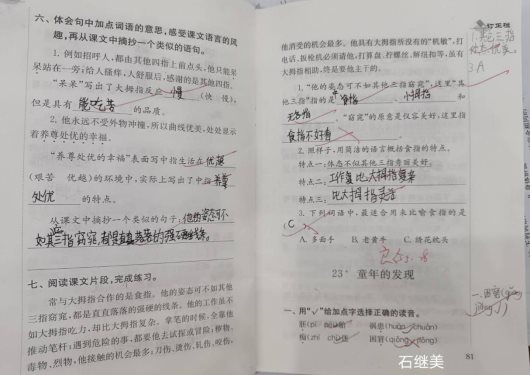 六、体会句中加点词语的意思，感受课文语言的风
趣，再从课文中摘抄一个类似的语句。
1. 例如招呼人，都由其他四指上前点头，他只能呆
呆站在一旁；给人搔痒，人舒服后，感谢的是其他四指。
“呆呆”写出了大拇指反应 慢 （快 慢），
但是具有 能吃苦 的品质。
2. 他永远不受外物冲撞，所以曲线优美，处处显示
着养尊处优的幸福。
“养尊处优的幸福”表面写中指生活在 优越
（艰苦 优越）的环境中，实际上写出了中指 养尊
处优 的特点。
从课文中摘抄一个类似的句子：他的姿态可不
如其三指窈窕，都是直直落落的强硬线条。
七、阅读课文片段，完成练习。
常与大拇指合作的是食指。他的姿态可不如其他
三指窈窕，都是直直落落的强硬的线条。他的工作虽不
如大拇指吃力，却比大拇指复杂。拿笔的时候，全靠他
推动笔杆；遇到危险的事，都要他去试探或冒险；秽物、
毒物、烈物，他接触的机会最多；刀伤、烫伤、轧伤、咬伤，
他消受的机会最多。他具有大拇指所没有的“机敏”，打
电话、扳枪机必须请他，打算盘、拧螺丝、解纽扣等，虽有
大拇指相助，终是要他主干的。
1. “他的姿态可不如其他三指窈窕”，这里“其
他三指”指的是 中指 、 小拇指 和
无名指 。“窈窕”的原意是仪容美好，这里指
食指不好看 。
2. 照样子，用简洁的语言概括食指的特点。
特点一：体态不似其他三指秀丽美好。
特点二：工作复比大拇指复杂
特点三：比大拇指灵活
3. 下列词语中，最适合用来比喻食指的是
（ C ）
A. 多面手 B. 老黄牛 C. 绣花枕头
23* 童年的发现
一、用“√”给加点字选择正确的读音。
81
石继美